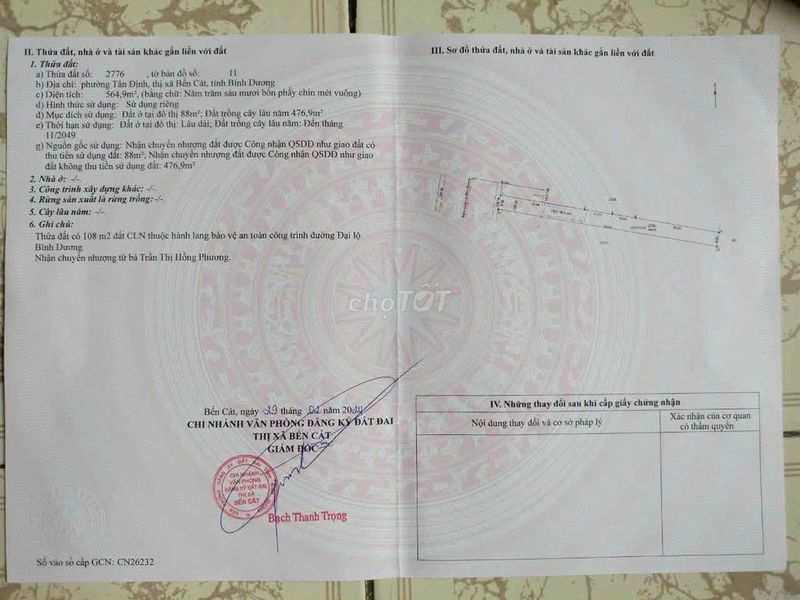 II. Thửa đất, nhà ở và tài sản khác gắn liền với đất
1. Thửa đất:
a) Thửa đất số: 2776 , tờ bản đồ số: 11
b) Địa chỉ: phường Tân Định, thị xã Bến Cát, tỉnh Bình Dương
c) Diện tích: 564,9m², (bằng chữ: Năm trăm sáu mươi bốn phẩy chín mét vuông)
d) Hình thức sử dụng: Sử dụng riêng
đ) Mục đích sử dụng: Đất ở tại đô thị 88m²; Đất trồng cây lâu năm 476,9m²
e) Thời hạn sử dụng: Đất ở tại đô thị: Lâu dài; Đất trồng cây lâu năm: Đến tháng
11/2049
g) Nguồn gốc sử dụng: Nhận chuyển nhượng đất được Công nhận QSDĐ như giao đất có
thu tiền sử dụng đất: 88m²; Nhận chuyển nhượng đất được Công nhận QSDĐ như giao
đất không thu tiền sử dụng đất: 476,9m²
2. Nhà ở: -/-
3. Công trình xây dựng khác: -/-
4. Rừng sản xuất là rừng trồng: -/-
5. Cây lâu năm: -/-
6. Ghi chú:
Thửa đất có 108 m2 đất CLN thuộc hành lang bảo vệ an toàn công trình đường Đại lộ
Bình Dương
Nhận chuyển nhượng từ bà Trần Thị Hồng Phương.
Bến Cát, ngày 29 tháng 02 năm
CHI NHÁNH VĂN PHÒNG ĐĂNG KÝ ĐẤT ĐAI
THỊ XÃ BẾN CÁT
GIÁM ĐỐC
CHI NHÁNH
VĂN PHÒNG
ĐĂNG KÝ ĐẤT ĐAI
THỊ XÃ
BẾN CÁT
Bạch Thanh Trọng
Số vào sổ cấp GCN: CN26232
III. Sơ đồ thửa đất, nhà ở và tài sản khác gắn liền với đất
chợTỐT
IV. Những thay đổi sau khi cấp giấy chứng nhận
Nội dung thay đổi và cơ sở pháp lý
Xác nhận của cơ quan
có thẩm quyền